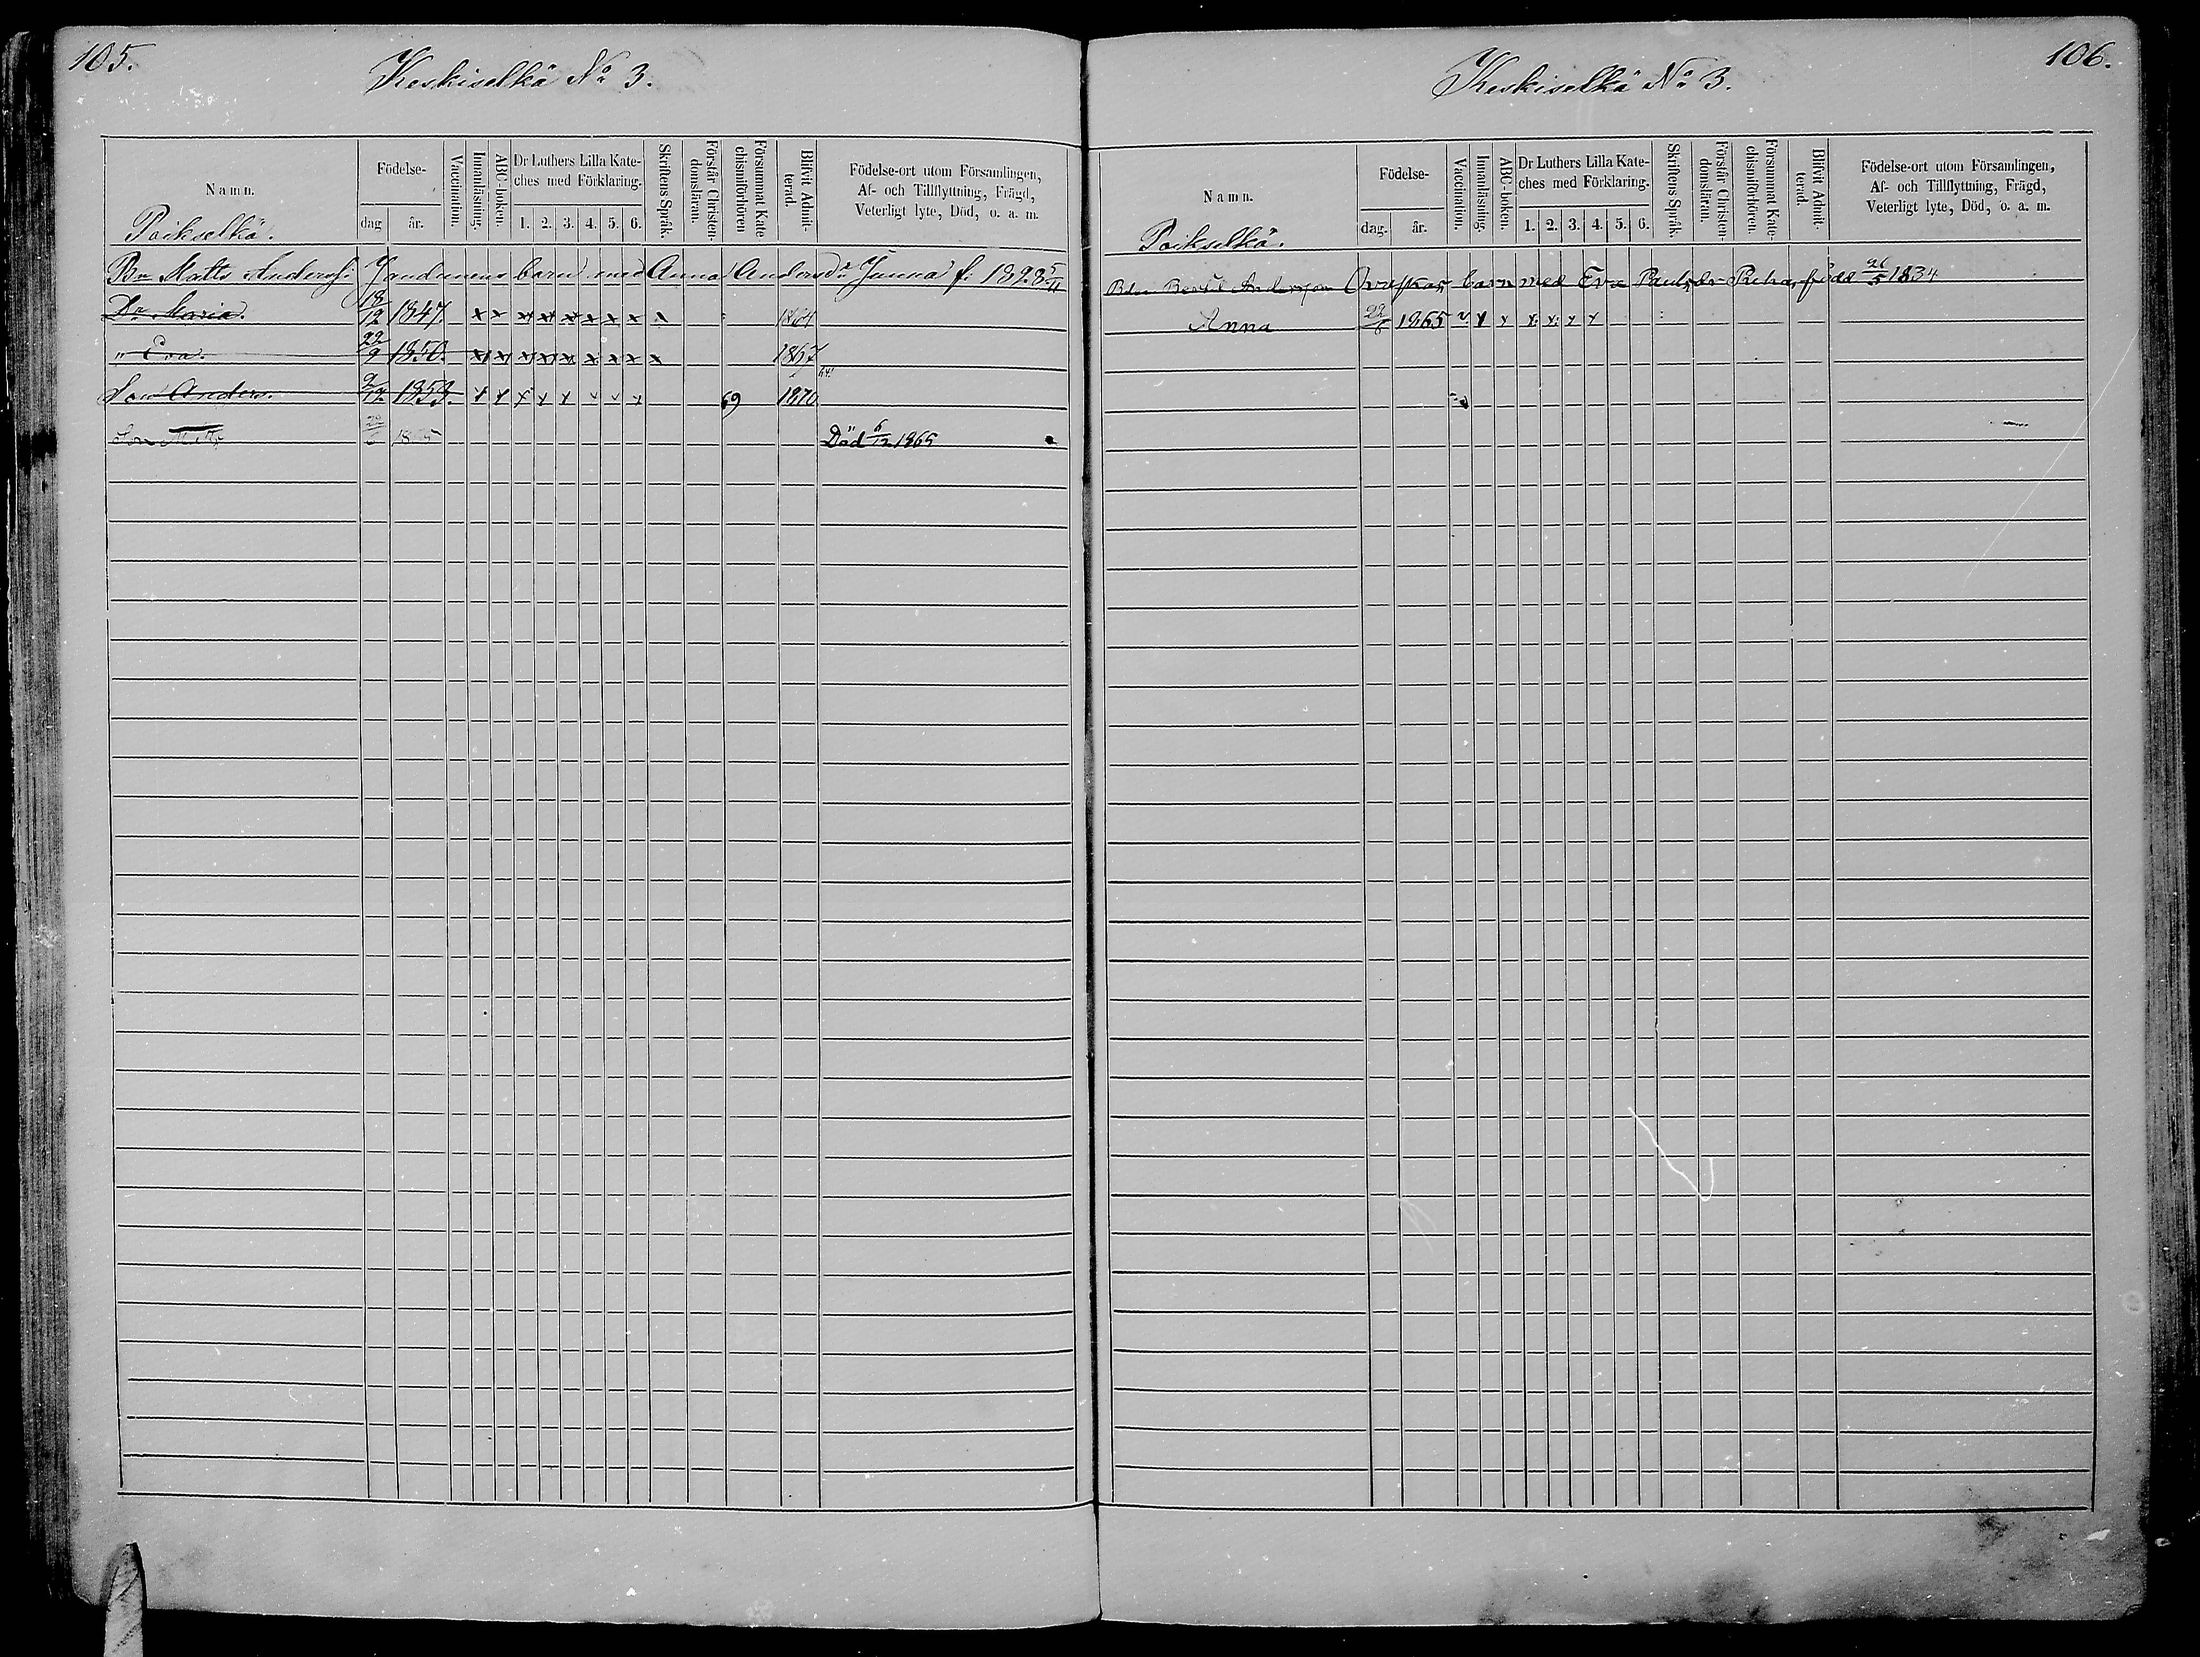 105.
Keskiselkä No 3.
Namn.
Födelse-
dag
år.
Vaccination.
Innanläsning.
ABC-boken.
Dr Luthers Lilla Kate-
ches med Förklaring.
1. 2. 3. 4. 5. 6.
Skriftens Språk.
Förstår Christen-
domsläran.
Försummat Kate
chismiförhören
Blifvit Admit-
terad.
Födelse-ort utom Församlingen,
Af- och Tillflyttning, Frägd,
Veterligt lyte, Död, o. a. m.
Poikselkä.
Bn Matts Anderss: barn med Anna Andersdr Janna f: 5/11
Dr Maria. 18/12 1847. x x x x x x x x x 1864
" Eva. 22/9 1850. x x x x x x x x x 1867
Son Anders. 2/12 1853. x x x x x x x x 69 1870
Son Död 6/12 1865
106.
Keskiselkä No 3.
Namn.
Födelse-
dag.
år.
Vaccination.
Innanläsning.
ABC-boken.
Dr Luthers Lilla Kate-
ches med Förklaring.
1. 2. 3. 4. 5. 6.
Skriftens Språk.
Förstår Christen-
domsläran.
Försummat Kate-
chismiförhören.
Blifvit Admit-
terad.
Födelse-ort utom Församlingen,
Af- och Tillflyttning, Frägd,
Veterligt lyte, Död, o. a. m.
Poikselkä.
Andersson barn med Eva Paulsdr född 26/5 1834
Anna 22/6 1865 v. x x x x x x